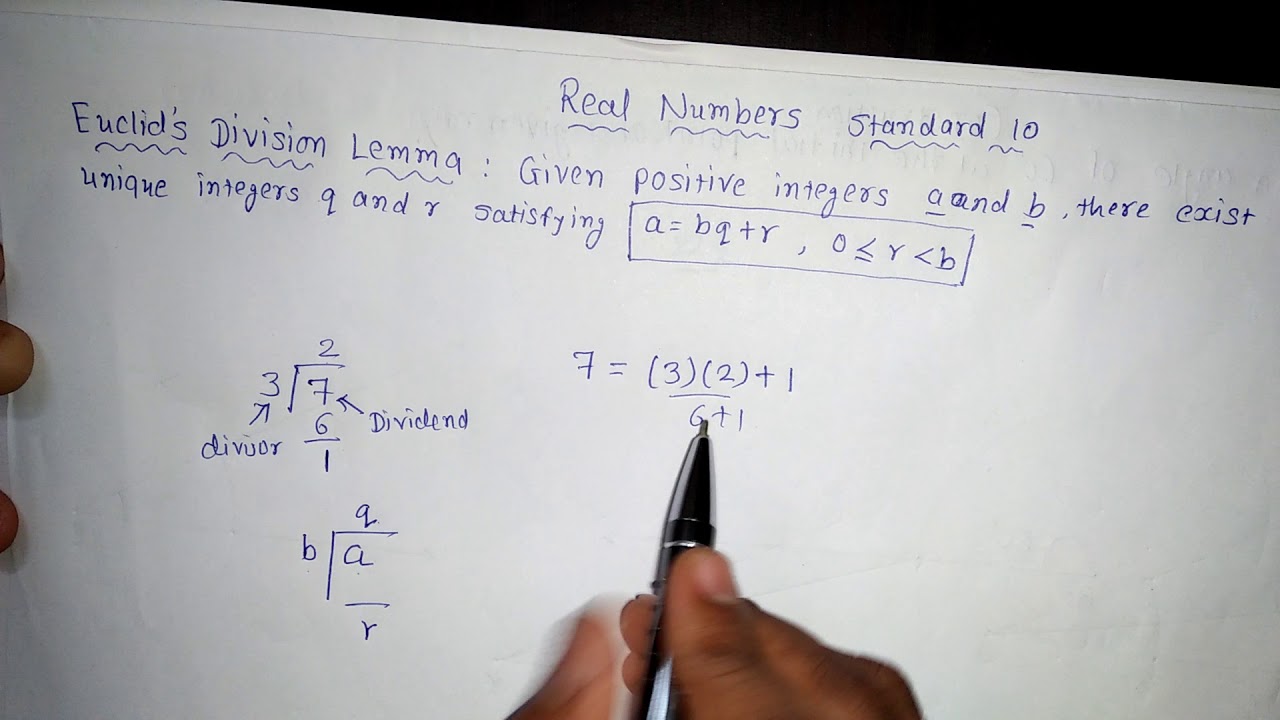 Real Numbers Standard 10
Euclid's Division Lemma : Given positive integers a and b, there exist
unique integers q and r satisfying a = bq + r , 0 ≤ r < b
2
3 7
6
1
divisor
Dividend
7 = (3)(2) + 1
6 + 1
q
b a
r